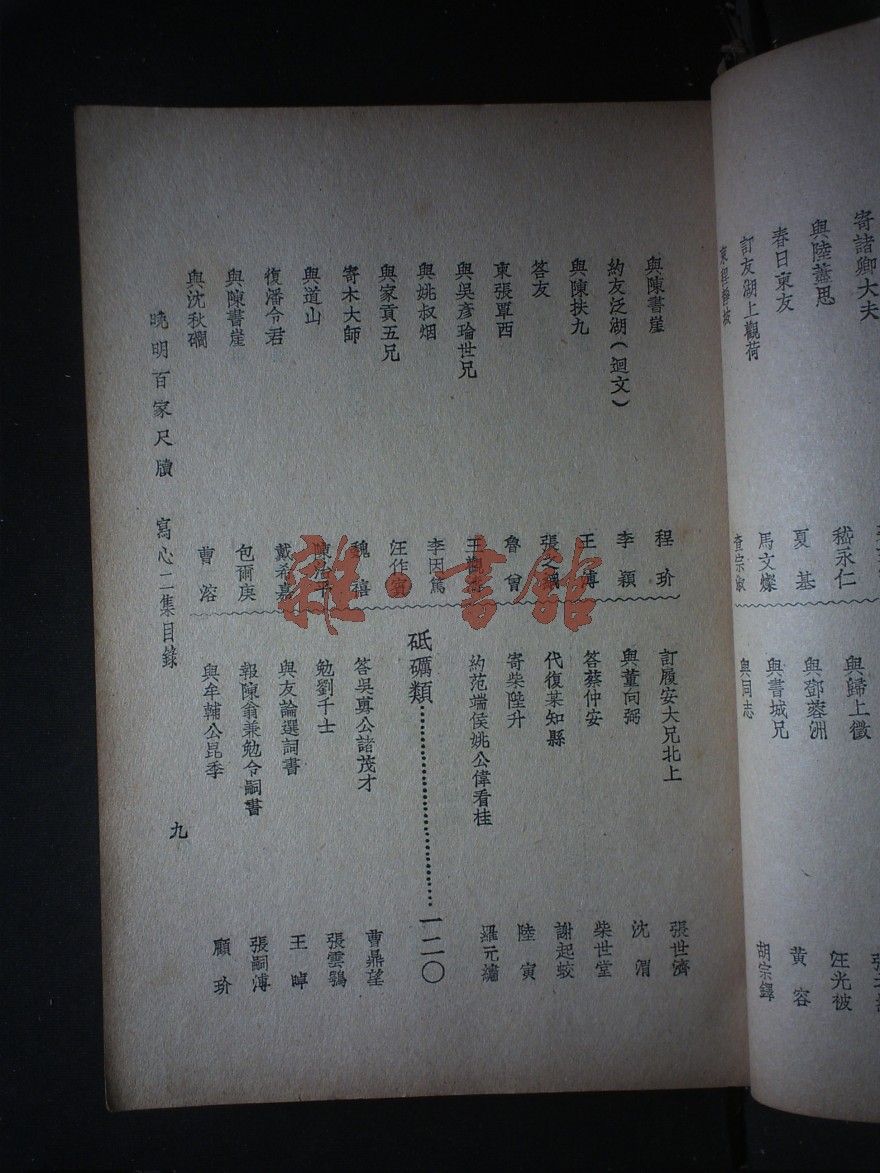 寄諸卿大夫
與陸藎思
嵇永仁
春日柬友
夏基
訂友湖上觀荷
馬文燦
查宗淑
與歸上徵
汪光被
與鄧蓉洲
黃容
與書城兄
胡宗鐸
與同志
與陳書崖
程玠
約友泛湖(迴文)
李穎
與陳扶九
王溥
答友
柬張覃西
魯曾
與吳彥瑜世兄
與姚叔烟
李因篤
與家貢五兄
寄木大師
魏禧
與道山
復潘令君
戴希嘉
與陳書崖
包爾庚
與沈秋礀
曹溶
訂履安大兄北上
張世濟
與董向弼
沈渭
答蔡仲安
柴世堂
代復某知縣
謝起蛟
寄柴陛升
陸寅
約范端侯姚公偉看桂
羅元
砥礪類……………………一二〇
答吳蓴公諸茂才
曹鼎望
勉劉千士
張雲鶚
與友論選詞書
王晫
報陳翁兼勉令嗣書
張嗣溥
與牟輔公昆季
顧玠
晚明百家尺牘 寫心二集目錄
九
雜·書館